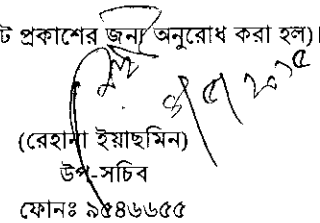 ট প্রকাশের জন্য অনুরোধ করা হল)।
(রেহানা ইয়াছমিন)
উপ-সচিব
ফোনঃ ৯৫৪৬৬৫৫